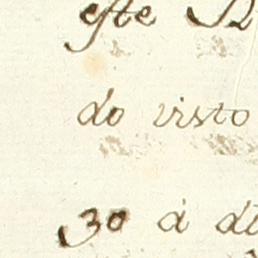 este
do visto
30 á